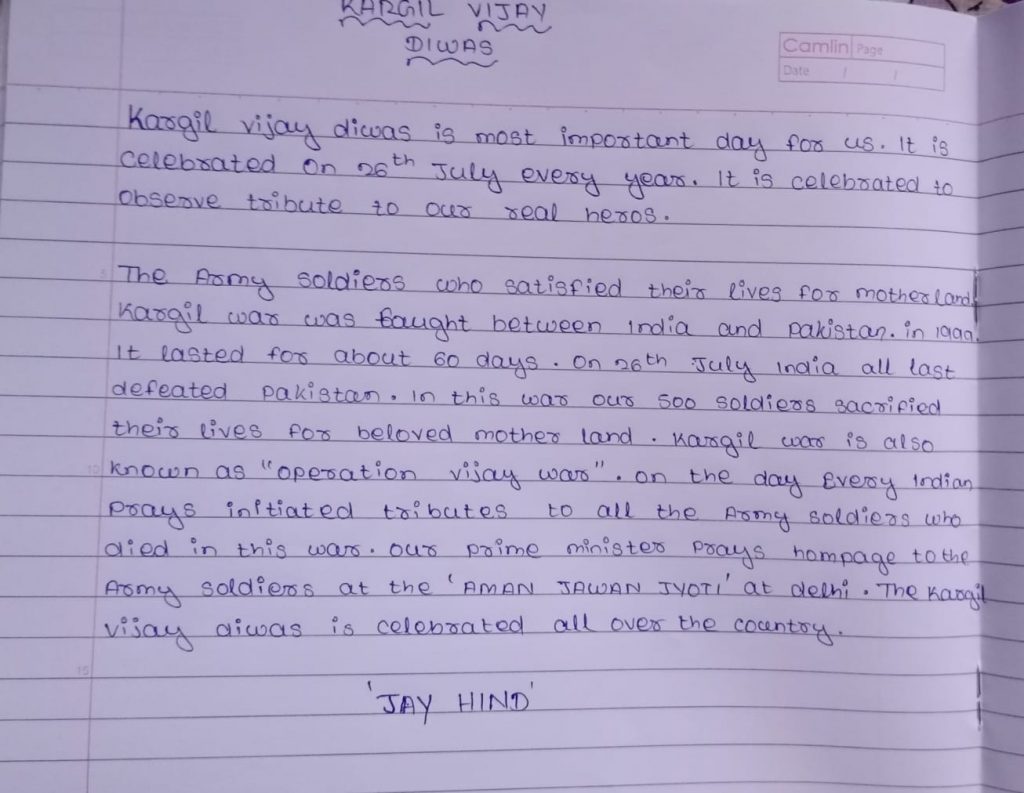 KARGIL VIJAY
DIWAS
Camlin Page
Date / /
Kargil vijay diwas is most important day for us. It is
celebrated on 26th July every year. It is celebrated to
observe tribute to our real heros.
5 The Army soldiers who satisfied their lives for motherland.
Kargil war was faught between India and pakistan. in 1999.
It lasted for about 60 days. On 26th July India all last
defeated pakistan. In this war our 500 soldiers sacrified
their lives for beloved mother land. Kargil war is also
10 known as "operation vijay war". on the day Every Indian
prays initiated tributes to all the Army soldiers who
died in this war. our prime minister prays hompage to the
Army soldiers at the 'AMAN JAWAN JYOTI' at delhi. The Kargil
vijay diwas is celebrated all over the country.
15
'JAY HIND'